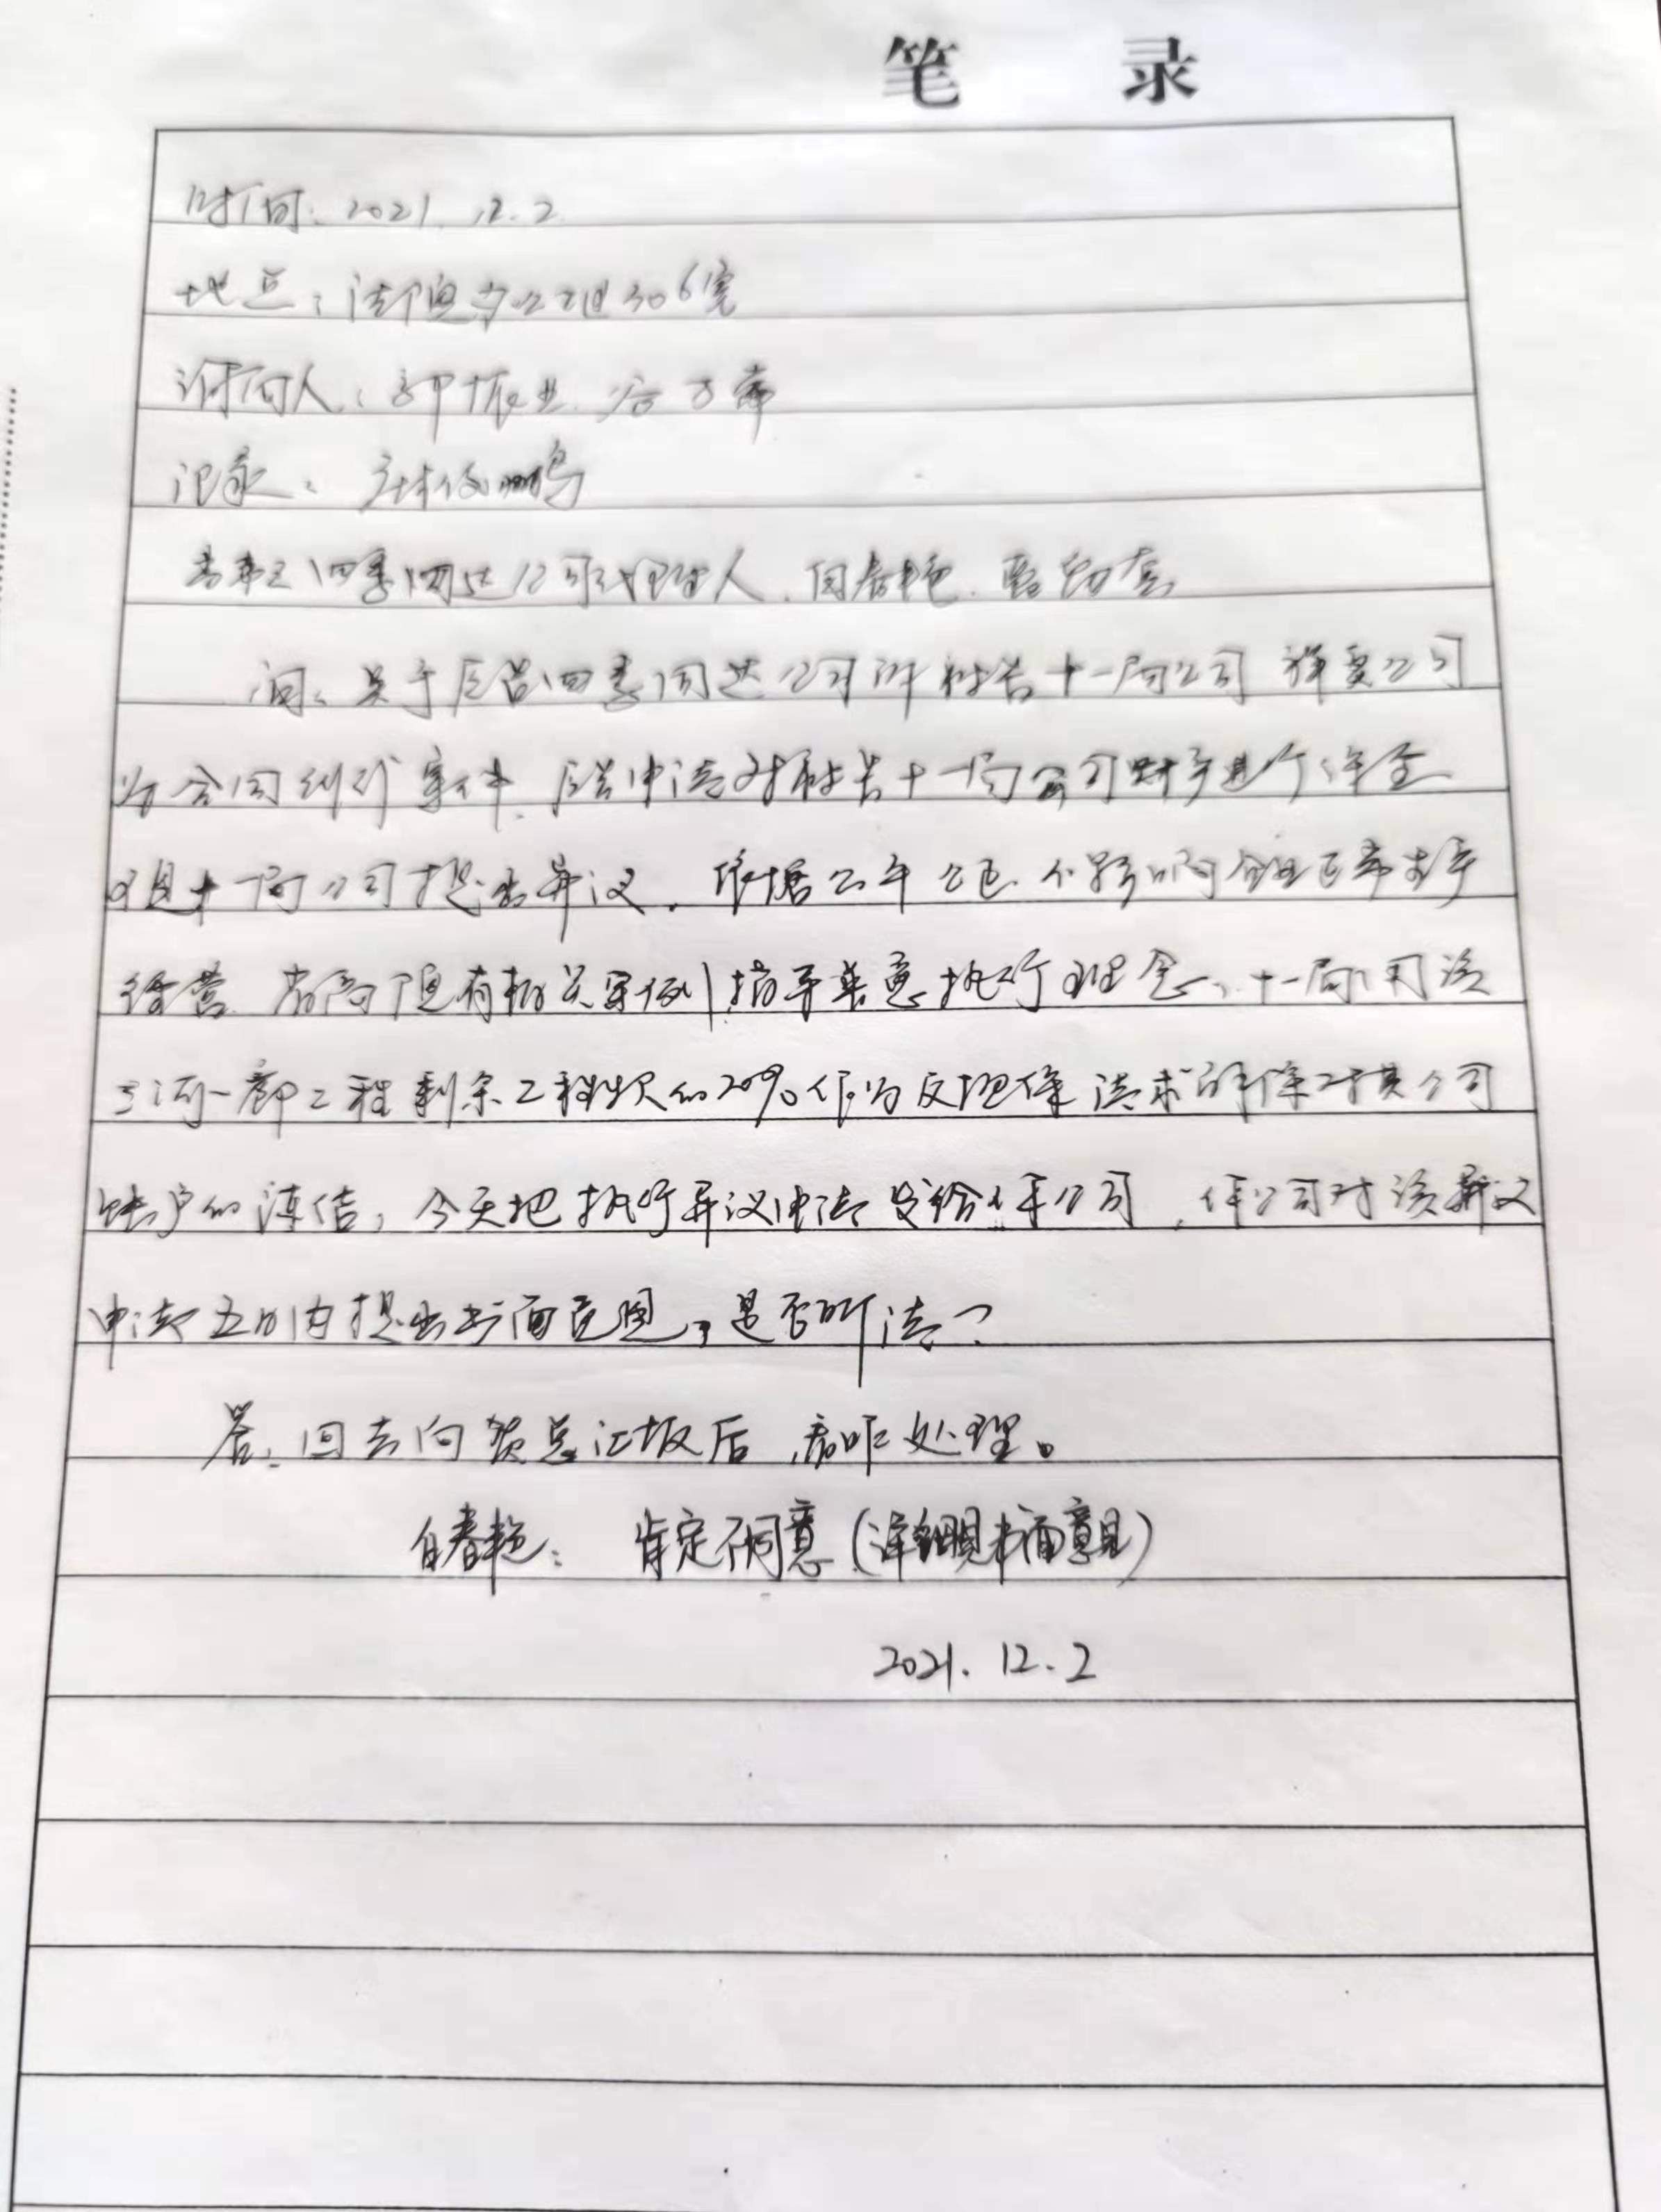 笔 录
时间：2021.12.2
地点：法院办公区306室
询问人：郭振业
记录：
当事人四季同达公司代理人 白春艳
问：关于原告四季同达公司诉被告十一局公司 祥 公司
为合同纠纷案件，原告申请对被告十一局公司财产进行保全
但十一局公司提出异议，依据公平 不影响企业正常生产
经营 高院有相关案例指导善意执行理念，十一局公司该
工程剩余工程款的20%作为反担保 请求解除对其公司
账户的冻结，今天把执行异议申请发给你公司，你公司对该异议
申请五日内提出书面意见，是否听清？
答：回去向贺总汇报后，商听处理。
白春艳： 肯定不同意（详细见书面意见）
2021.12.2